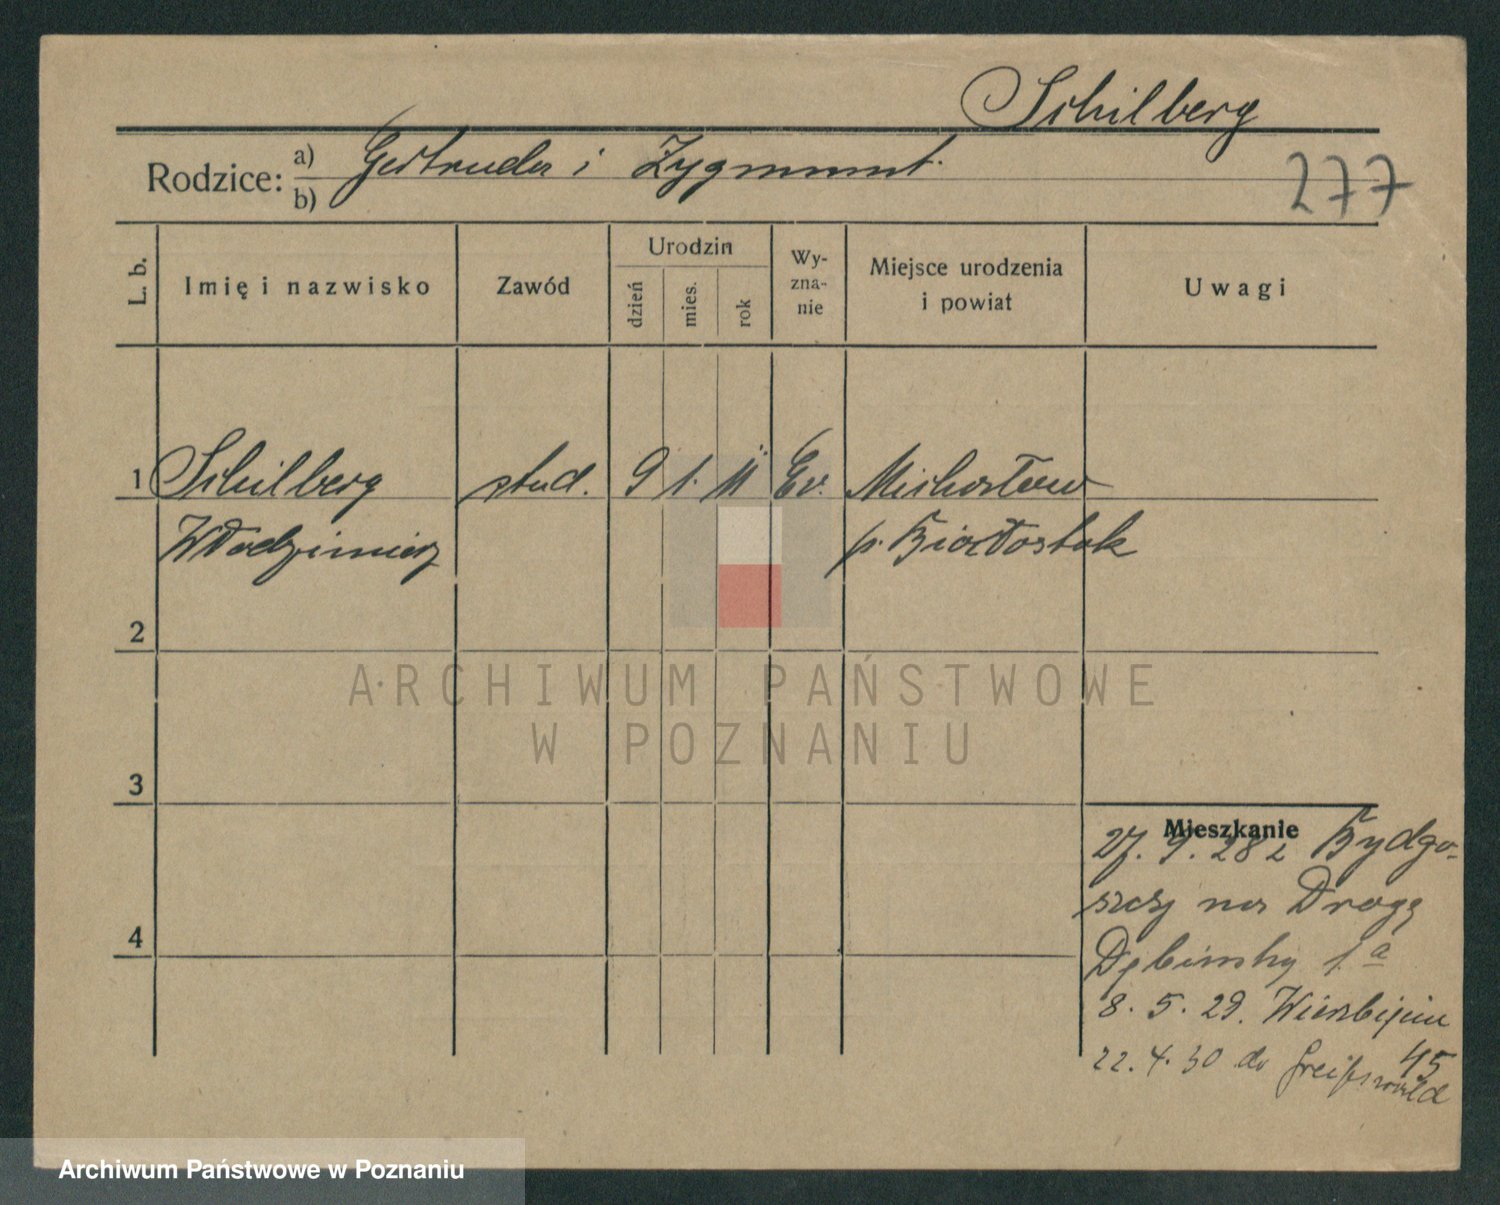 Schilberg
Rodzice: a) Gertruda i Zygmunt.
b)
277
L. b.
Imię i nazwisko
Zawód
Urodzin
dzień
mies.
rok
Wy-
zna-
nie
Miejsce urodzenia
i powiat
Uwagi
1 Schilberg stud. 9 1. 11 Ev. Michałowo
Włodzimierz p. Białostok
2
3
4
Mieszkanie
27. 9. 28 z Bydgo-
szczy na Drogę
Dębińską 1 a
8. 5. 29. Wierzbięcice
45
22. 4. 30 do Greifswald
ARCHIWUM PAŃSTWOWE
W POZNANIU
Archiwum Państwowe w Poznaniu